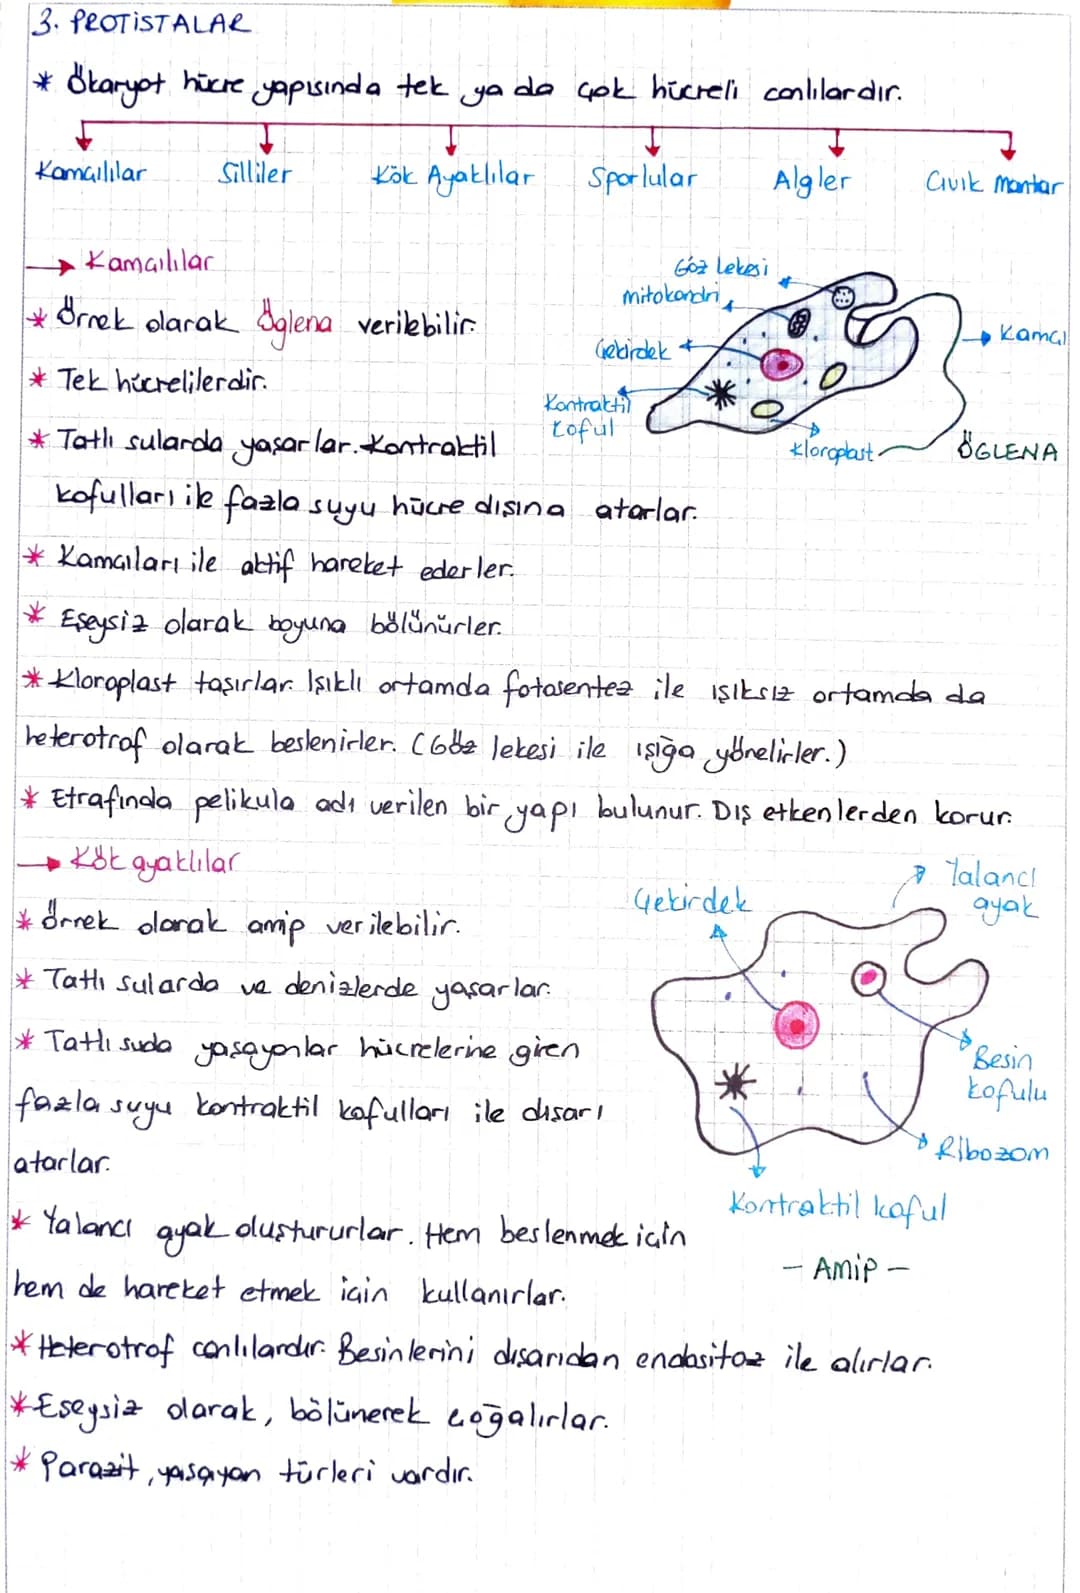 3. PROTİSTALAR
* Ökaryot hücre yapısında tek ya da çok hücreli canlılardır.
Kamçılılar Silliler Kök Ayaklılar Sporlular Algler Cıvık Mantar
→ Kamçılılar
* Örnek olarak Öglena verilebilir.
* Tek hücrelilerdir.
* Tatlı sularda yaşarlar. Kontraktil
kofulları ile fazla suyu hücre dışına atarlar.
Göz Lekesi
mitokondri
Çekirdek
Kontraktil
koful
Kamçı
Kloroplast
ÖGLENA
* Kamçıları ile aktif hareket ederler.
* Eşeysiz olarak boyuna bölünürler.
* Kloroplast taşırlar. Işıklı ortamda fotosentez ile ışıksız ortamda da
heterotrof olarak beslenirler. (Göz lekesi ile ışığa yönelirler.)
* Etrafında pelikula adı verilen bir yapı bulunur. Dış etkenlerden korur.
→ Kök ayaklılar
* Örnek olarak amip verilebilir.
* Tatlı sularda ve denizlerde yaşarlar.
* Tatlı suda yaşayanlar hücrelerine giren
fazla suyu kontraktil kofulları ile dışarı
atarlar.
Çekirdek
Yalancı
ayak
Besin
kofulu
Ribozom
Kontraktil koful
- Amip -
* Yalancı ayak oluştururlar. Hem beslenmek için
hem de hareket etmek için kullanırlar.
* Heterotrof canlılardır. Besinlerini dışarıdan endositoz ile alırlar.
* Eşeysiz olarak, bölünerek çoğalırlar.
* Parazit yaşayan türleri vardır.